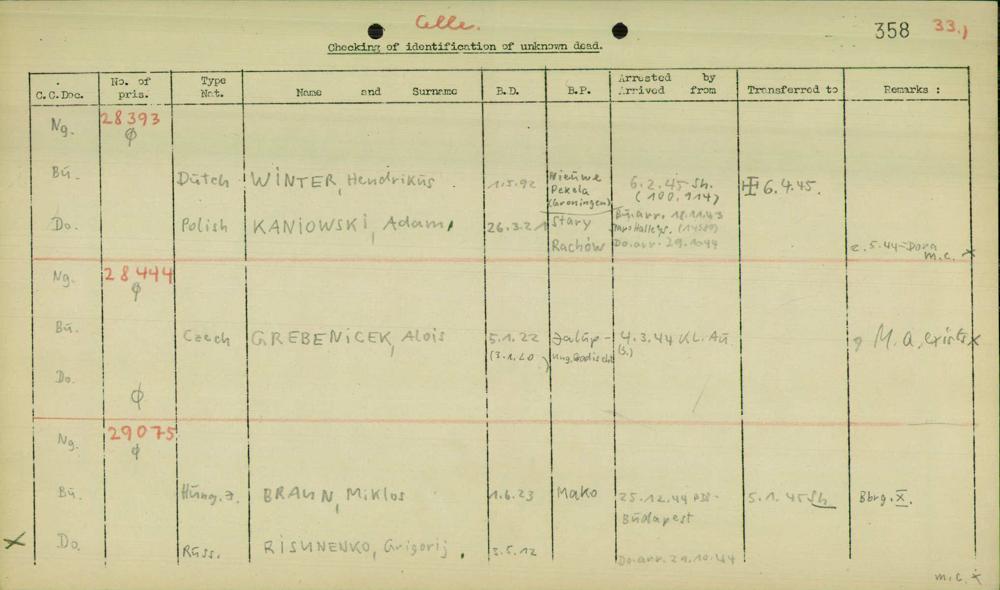 Celle.
358 33.)
Checking of identification of unknown dead.
C.C.Doc. No. of pris. Type Nat. Name and Surname B.D. B.P. Arrested by Arrived from Transferred to Remarks :
Ng. 28393
ϕ
Bū. Dūtch WINTER, Hendrikūs 1.5.92 Nieuwe Pekela (Groningen) 6.2.45 Sh. (100.914) 6.4.45.
Do. Polish KANIOWSKI, Adam, 26.3.21 Stary Rachów Bū.arr. 18.11.43 (14589) Do.arr. 29.10.44
2.5.44-Dora
m.c. x
Ng. 28444
ϕ
Bū. Czech GREBENICEK, Alois 5.1.22 (3.1.20) Jalūp- Ung.Hradisch 4.3.44 KL. Aū. M.a. exists x
Do. ϕ
Ng. 29075
ϕ
Bū. Hūng.J. BRAUN, Miklos 1.6.23 Mako 25.12.44 Būdapest 5.1.45 Sh Bbrg. X.
x Do. Rūss. RISUNENKO, Grigorij, 3.5.12 Do.arr. 29.10.44
m.c. x